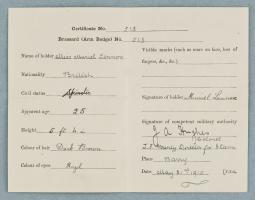 Certificate No. 213
Brassard (Arm Badge) No. 213
Name of holder Miss Muriel Lennox
Nationality British
Civil status Spinster
Apparent age 25
Height 5 ft 4
Colour of hair Dark Brown
Colour of eyes Hazel
Visible marks (such as scars on face, loss of
fingers, &c., &c.)
Signature of holder Muriel Lennox
Signature of competent military authority
J A Hughes
Colonel
County Director for Glam
Place Barry
Date May 31st 191